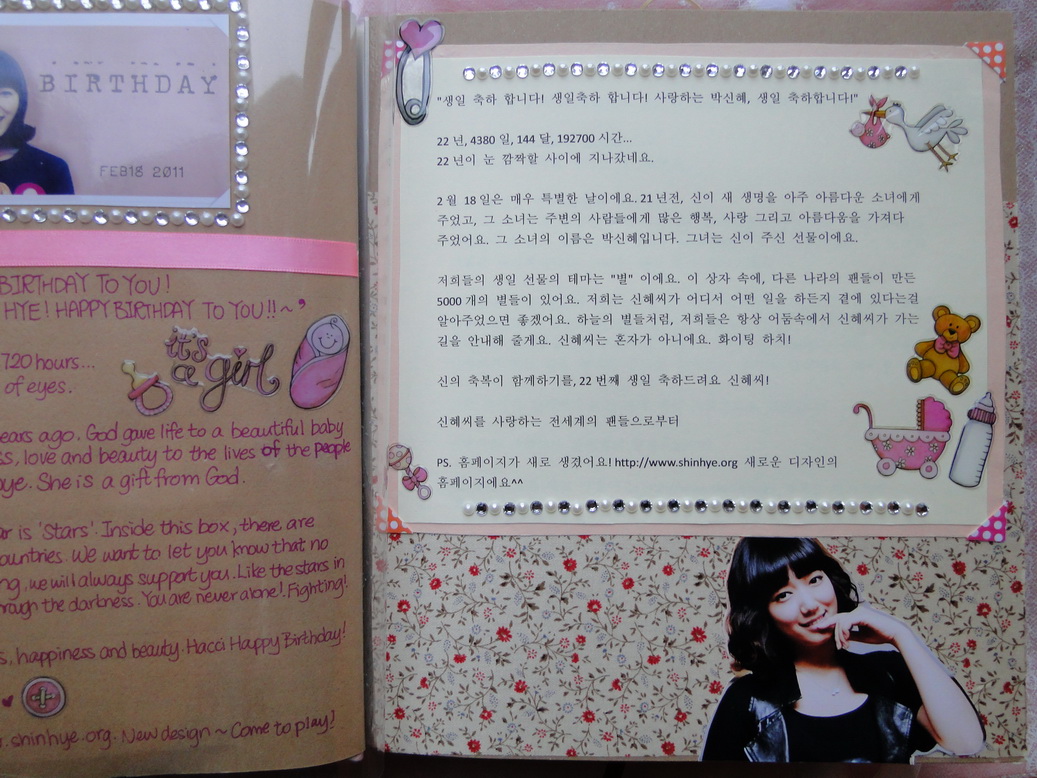 BIRTHDAY
FEB18 2011
BIRTHDAY TO YOU!
HYE! HAPPY BIRTHDAY TO YOU!!~'
720 hours...
of eyes.
it's
a girl
ears ago. God gave life to a beautiful baby
ss, love and beauty to the lives of the people
hye. She is a gift from God.
ar is 'Stars'. Inside this box, there are
countries. We want to let you know that no
ng, we will always support you. Like the stars in
hrough the darkness. You are never alone! Fighting!
s, happiness and beauty. Hacci Happy Birthday!
.shinhye.org. New design ~ Come to play!
"생일 축하 합니다! 생일축하 합니다! 사랑하는 박신혜, 생일 축하합니다!"
22 년, 4380 일, 144 달, 192700 시간...
22 년이 눈 깜짝할 사이에 지나갔네요.
2 월 18 일은 매우 특별한 날이에요. 21 년전, 신이 새 생명을 아주 아름다운 소녀에게
주었고, 그 소녀는 주변의 사람들에게 많은 행복, 사랑 그리고 아름다움을 가져다
주었어요. 그 소녀의 이름은 박신혜입니다. 그녀는 신이 주신 선물이에요.
저희들의 생일 선물의 테마는 "별" 이에요. 이 상자 속에, 다른 나라의 팬들이 만든
5000 개의 별들이 있어요. 저희는 신혜씨가 어디서 어떤 일을 하든지 곁에 있다는걸
알아주었으면 좋겠어요. 하늘의 별들처럼, 저희들은 항상 어둠속에서 신혜씨가 가는
길을 안내해 줄게요. 신혜씨는 혼자가 아니에요. 화이팅 하치!
신의 축복이 함께하기를, 22 번째 생일 축하드려요 신혜씨!
신혜씨를 사랑하는 전세계의 팬들으로부터
PS. 홈페이지가 새로 생겼어요! http://www.shinhye.org 새로운 디자인의
홈페이지에요^^